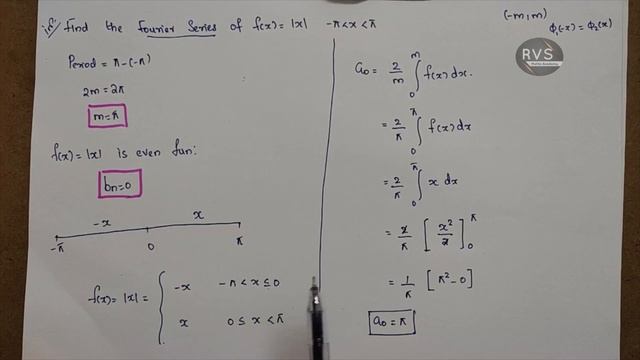 Find the Fourier Series of f(x) = |x| -π<x<π
(-m, m)
φ₁(-x) = φ₂(x)
Period = π-(-π)
2m = 2π
m = π
f(x) = |x| is even fun:
bn = 0
-x x
-π 0 π
f(x) = |x| = { -x -π<x≤0
x 0≤x<π
RVS
a₀ = 2/m ∫₀ᵐ f(x) dx.
= 2/π ∫₀^π f(x) dx
= 2/π ∫₀^π x dx
= 2/π [x²/2]₀^π
= 1/π [π²-0]
a₀ = π